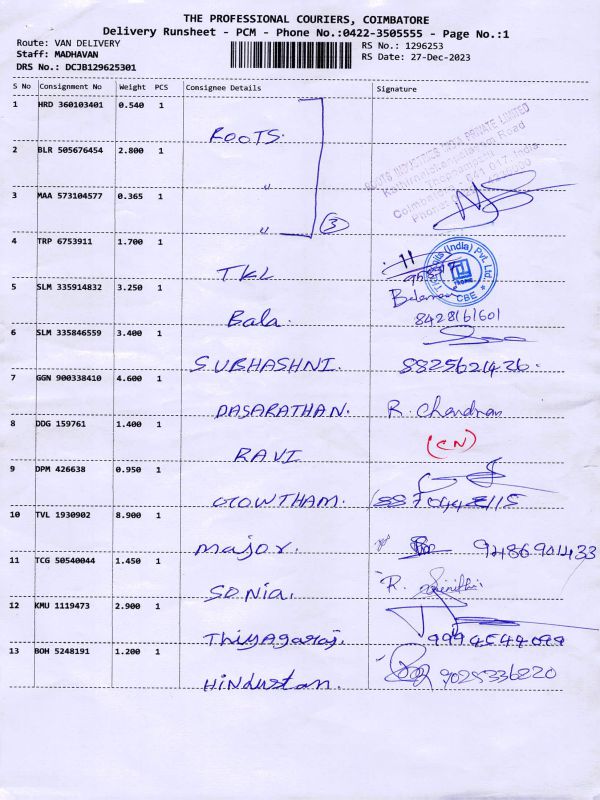 THE PROFESSIONAL COURIERS, COIMBATORE
Delivery Runsheet - PCM - Phone No.:0422-3505555 - Page No.:1
Route: VAN DELIVERY
Staff: MADHAVAN
DRS No.: DCJB129625301
RS No.: 1296253
RS Date: 27-Dec-2023
S No Consignment No Weight PCS Consignee Details Signature
1 HRD 360103401 0.540 1 ROOTS.
2 BLR 505676454 2.800 1 "
3 MAA 573104577 0.365 1 " 3
4 TRP 6753911 1.700 1 TKL
5 SLM 335914832 3.250 1 Bala. 8428161601
6 SLM 335846559 3.400 1 SUBHASHNI. 8825621426.
7 GGN 900338410 4.600 1 DASARATHAN. R. Chandran
8 DDG 159761 1.400 1 RAVI (CN)
9 DPM 426638 0.950 1 GOWTHAM.
10 TVL 1930902 8.900 1 Major. 9486901433
11 TCG 50540044 1.450 1 SONIA.
12 KMU 1119473 2.900 1 Thiyagaraj. 9994544099
13 BOH 5248191 1.200 1 Hindustan. 9025336220